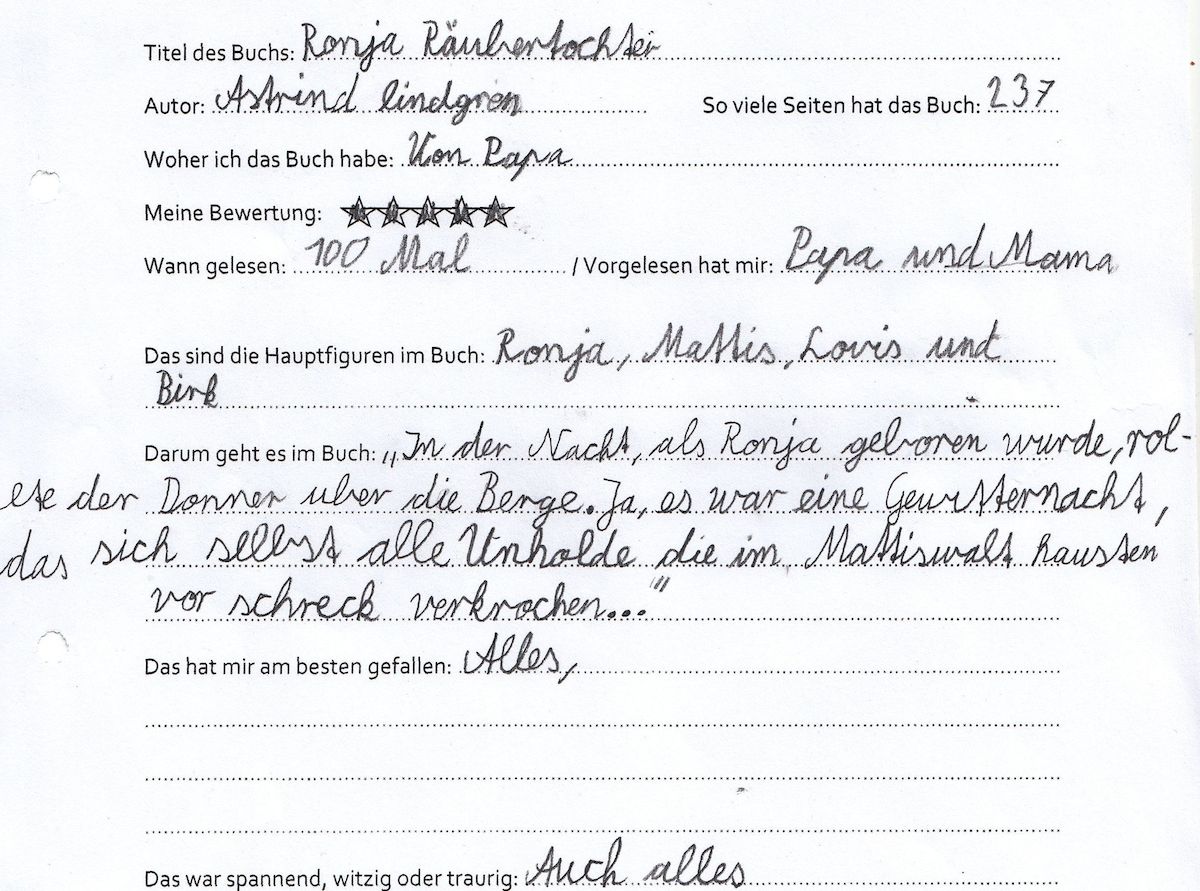 Titel des Buchs: Ronja Räubertochter
Autor: Astrind lindgren So viele Seiten hat das Buch: 237
Woher ich das Buch habe: Von Papa
Meine Bewertung:
Wann gelesen: 100 Mal / Vorgelesen hat mir: Papa und Mama
Das sind die Hauptfiguren im Buch: Ronja, Mattis, Lovis und
Birk
Darum geht es im Buch: „In der Nacht, als Ronja geboren wurde, rol-
lte der Donner uber die Berge. Ja, es war eine Gewitternacht,
das sich selbst alle Unholde die im Mattiswalt hausten
vor schreck verkrochen..."
Das hat mir am besten gefallen: Alles,
Das war spannend, witzig oder traurig: Auch alles